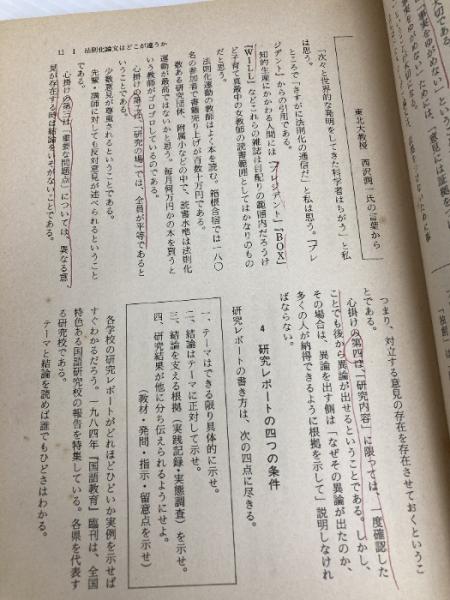 11　1　法則化論文はどこが違うか
東北大教授　西沢潤一氏の言葉から
「次々と世界的な発明をしてきた科学者はちがう」と私
は思う。
ところで「さすがに法則化の通信だ」と私は思う。「プレ
ジデント」からの引用である。
知的生産にかかわる人間には『プレジデント』『BOX』
『Will』などこれらの雑誌は目配りの範囲内だろうけ
ど子育て真最中の女教師の読書範囲としてはかなりのもの
だと思う。
法則化運動の教師はよく本を読む。箱根合宿では一八〇
名の参加者で書籍売り上げが百数十万円である。
数ある研究団体、附属小などの中で、読書水準は法則化
運動が最高ではないかと思う。毎月何万円かの本を買うと
いう教師がゴロゴロしているのである。
心掛けの第二は、「研究の場」では、全員が平等であると
いうことである。
少数意見が尊重されるということである。
先輩・講師に対しても反対意見が述べられるということ
である。
心掛けの第三は、「重要な問題点」については、異なる意
見が存在する時は結論をいそがないことである。
つまり、対立する意見の存在を存在させておくというこ
とである。
心掛けの第四は、「研究内容」に限っては、一度確認した
ことでも後から異論が出せるということである。しかし、
その場合は、異論を出す側は「なぜその異論が出たのか、
多くの人が納得できるように根拠を示して」説明しなけれ
ばならない。
4　研究レポートの四つの条件
研究レポートの書き方は、次の四点に尽きる。
一、テーマはできる限り具体的に示せ。
二、結論はテーマに正対して示せ。
三、結論を支える根拠（実践記録・実態調査）を示せ。
四、研究結果が他に分ち伝えられるようにせよ。
（教材・発問・指示・留意点を示せ）
各学校の研究レポートがどれほどひどいか実例を示せば
すぐわかるだろう。一九八四年『国語教育』臨刊は、全国
特色ある国語研究校の報告を特集している。各県を代表す
る研究校である。
テーマと結論を読めば誰でもひどさはわかる。